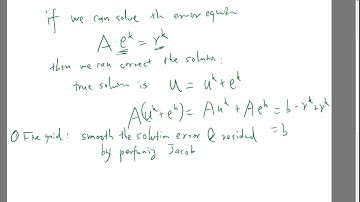 if we can solve the error equation
A e^k = r^k
then we can correct the solution:
true solution is u = u^k + e^k
A(u^k + e^k) = A u^k + A e^k = b - r^k + r^k
= b
① Fine grid: smooth the solution error & residual
by performing Jacob